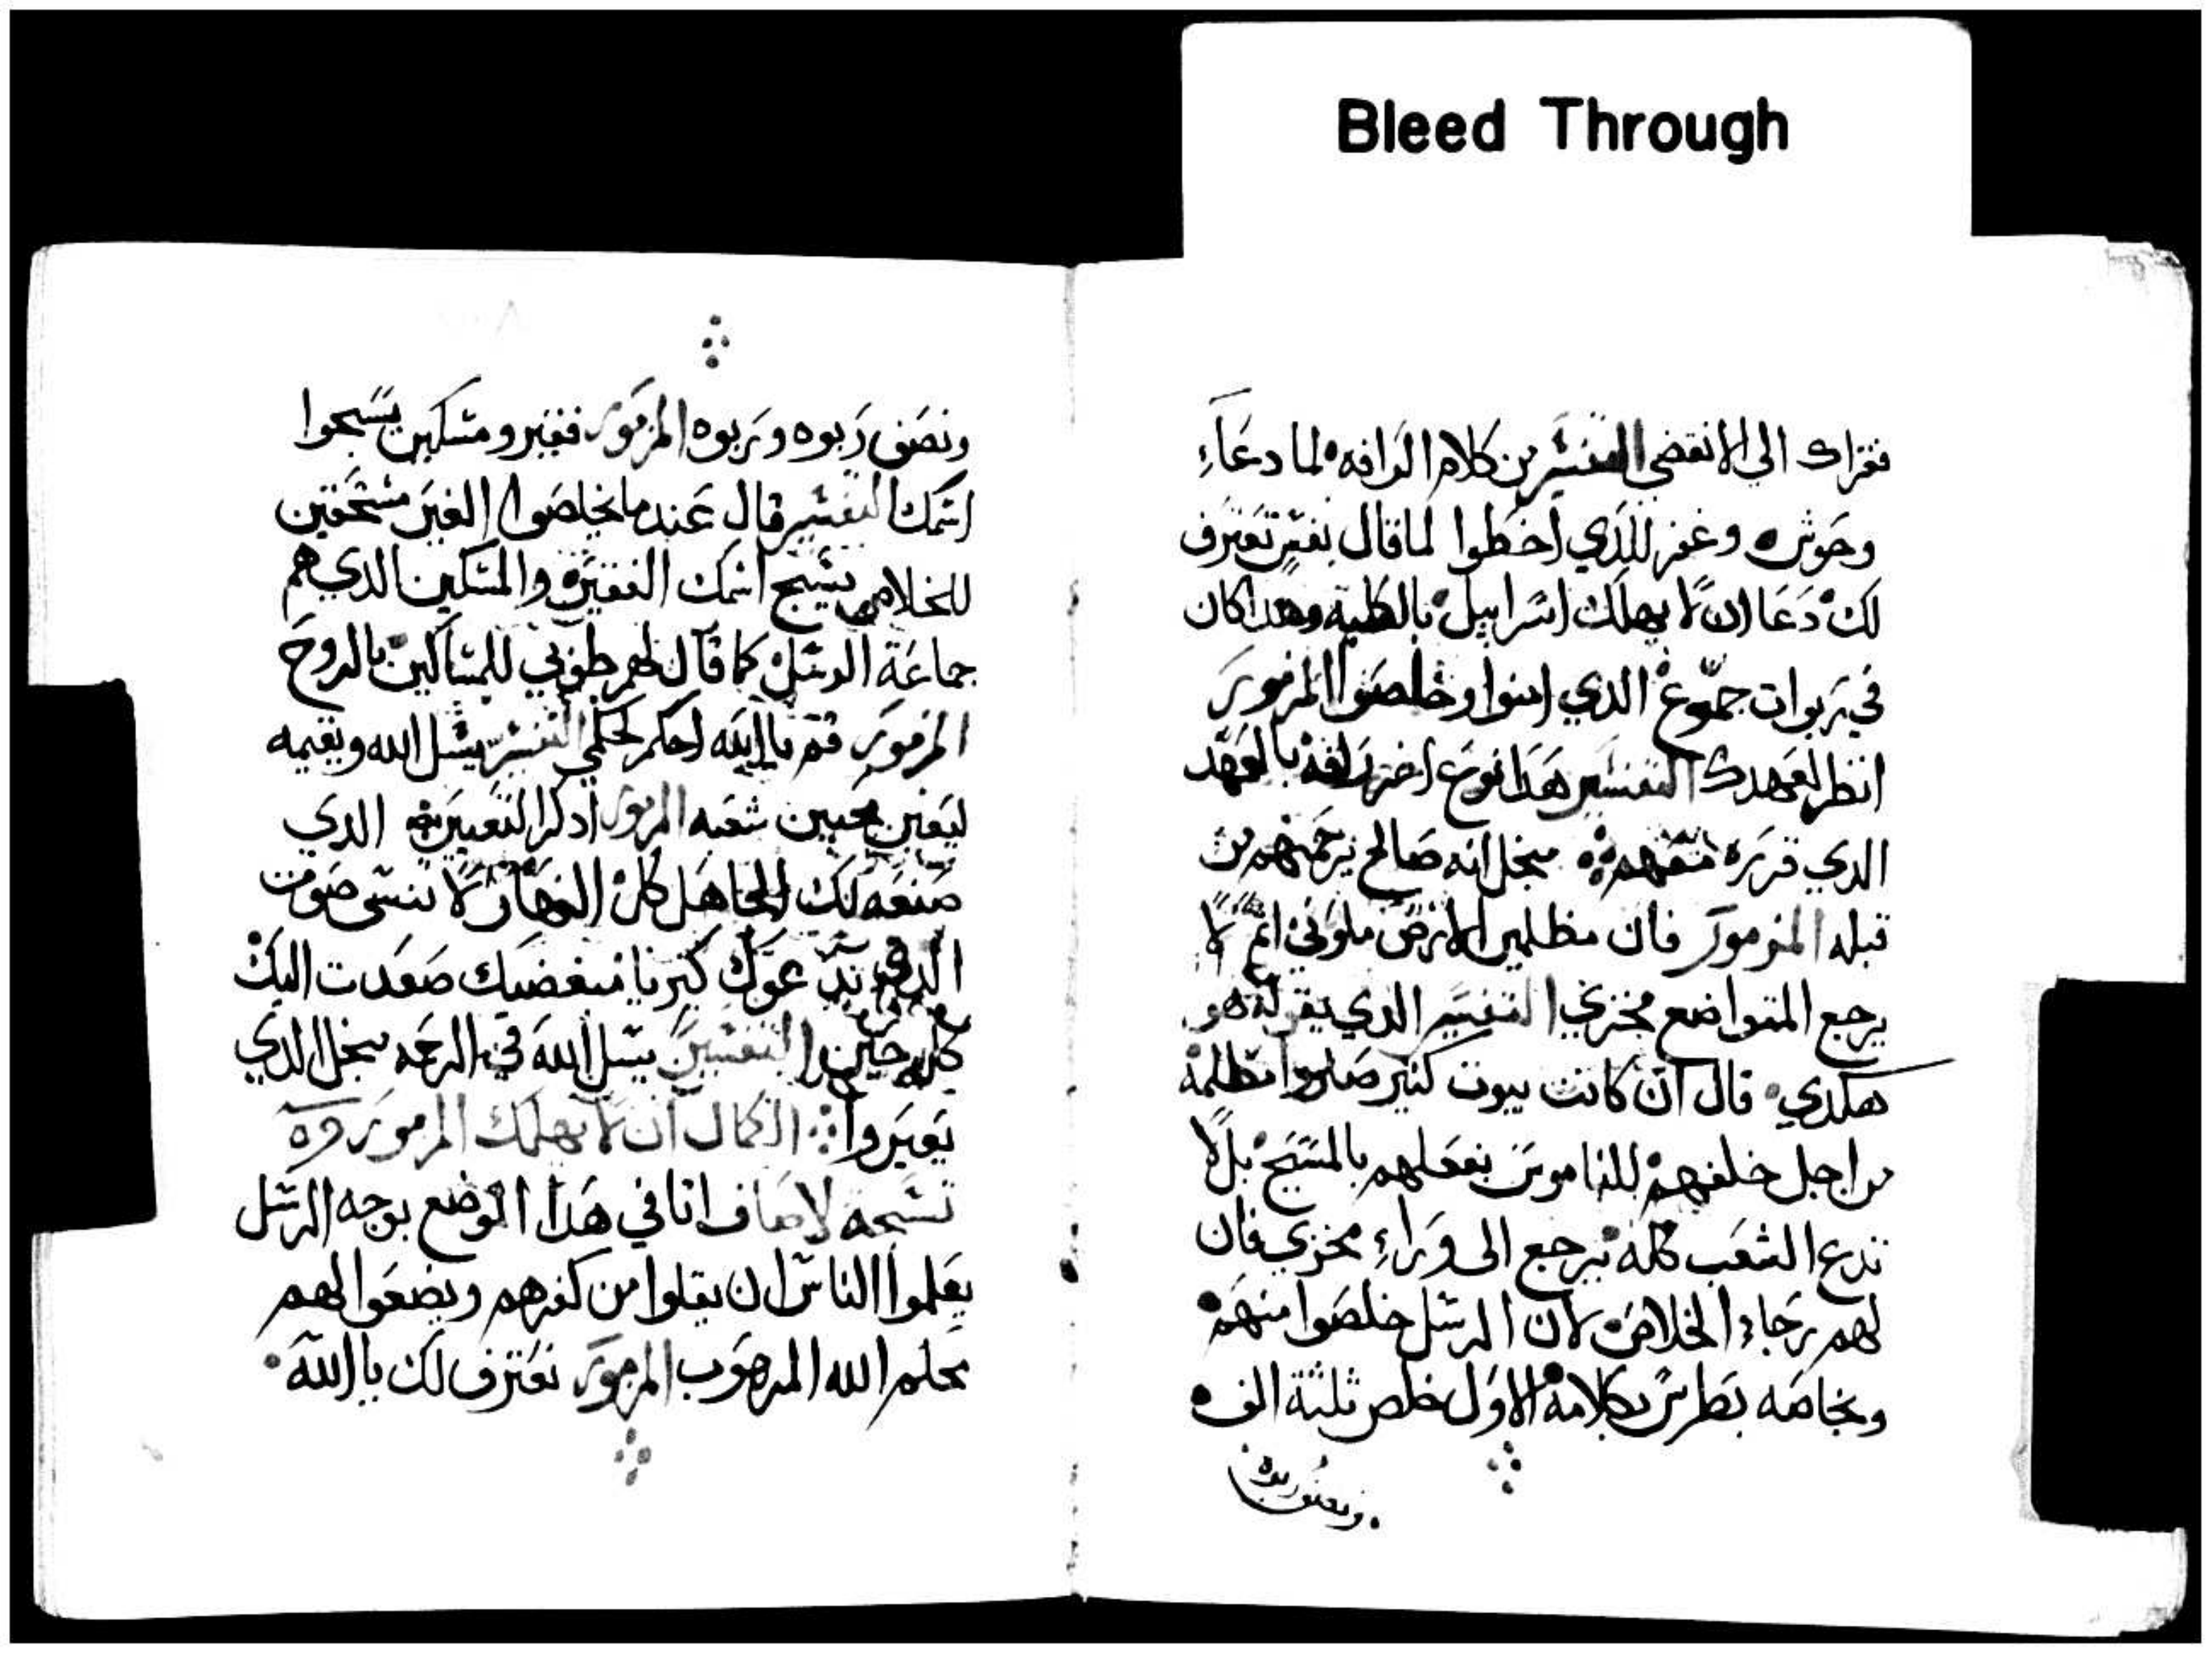 Bleed Through
فقراك الي الانقضي التفسير من كلام الرافه لما دعاء
وحوش وغفر للذي اخطوا لما قال نفس تعترف
لك دعا ان لا يهلك اسراييل بالكلية وهدا كان
في ربوات جموع الدي امنوا وخلصوا المزمور
انظر لعهدك التفسير هدا نوع اخر رافه بالعهد
الدي قرره معهم من اجل انه صالح يرحمهم من
قبله المزمور فان مظلمين الارض ملوني اتم لا
يرجع المتواضع مخزي التفسير الدي يقوله هو
هكدي قال ان كانت بيوت كتير صاروا مظلمة
من اجل خلفهم للناموس بفعلهم بالمسيح بل لا
تدع الشعب كله يرجع الى وراء مخزي فان
لهم رجاء الخلاص لان الرسل خلصوا منهم
وبخاصه بطرس بكلامه الاول خلص ثلثة الف
ونصف ربوه
ونصف ربوه وربوه المزمور فقير ومسكين يسبحوا
اسمك التفسير قال عندما يخلصوا الغير مستحقين
للخلاص يسبح اسمك الفقير والمسكين الدي هم
جماعة الرسل كما قال لهم طوبي للمساكين بالروح
المزمور قم يا الله احكم لحكمي التفسير يسل الله ويقيمه
ليعين محبين شعبه المزمور ادكر التعيير الدي
صنعه لك الجاهل كل النهار لا تنسى صوت
الدي عوك كبريا مبغضيك صعدت اليك
كل حين التفسير يسل الله في الرحمه من اجل الدي
تعيروا الكمال ان لا تهلك المزمور
تسبحه لاصاف انا في هدا الموضع بوجه الرسل
يعلموا الناس ان يقلوا من كفرهم ويضعوا لهم
حلم الله المرهوب المزمور نعترف لك يا الله